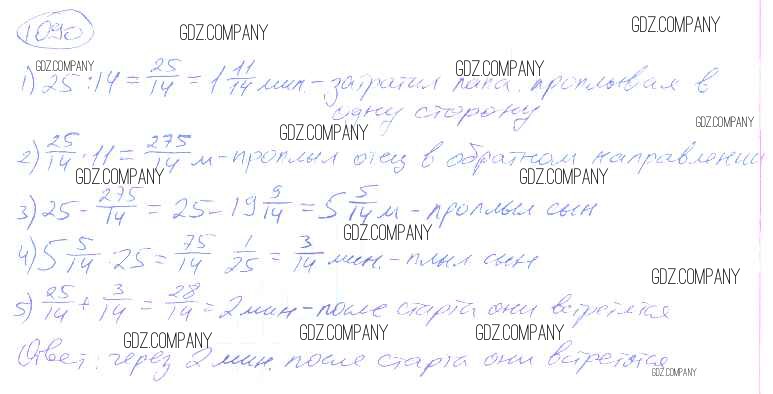 1090
GDZ.COMPANY GDZ.COMPANY
GDZ.COMPANY GDZ.COMPANY
1) 25 : 14 = 25/14 = 1 11/14 мин. - затратил папа, проплывая в
одну сторону
GDZ.COMPANY GDZ.COMPANY
2) 25/14 · 11 = 275/14 м - проплыл отец в обратном направлении
GDZ.COMPANY GDZ.COMPANY
3) 25 - 275/14 = 25 - 19 9/14 = 5 5/14 м - проплыл сын
GDZ.COMPANY
4) 5 5/14 : 25 = 75/14 1/25 = 3/14 мин. - плыл сын
GDZ.COMPANY
5) 25/14 + 3/14 = 28/14 = 2 мин - после старта они встретятся
GDZ.COMPANY GDZ.COMPANY GDZ.COMPANY
Ответ: через 2 мин. после старта они встретятся
GDZ.COMPANY